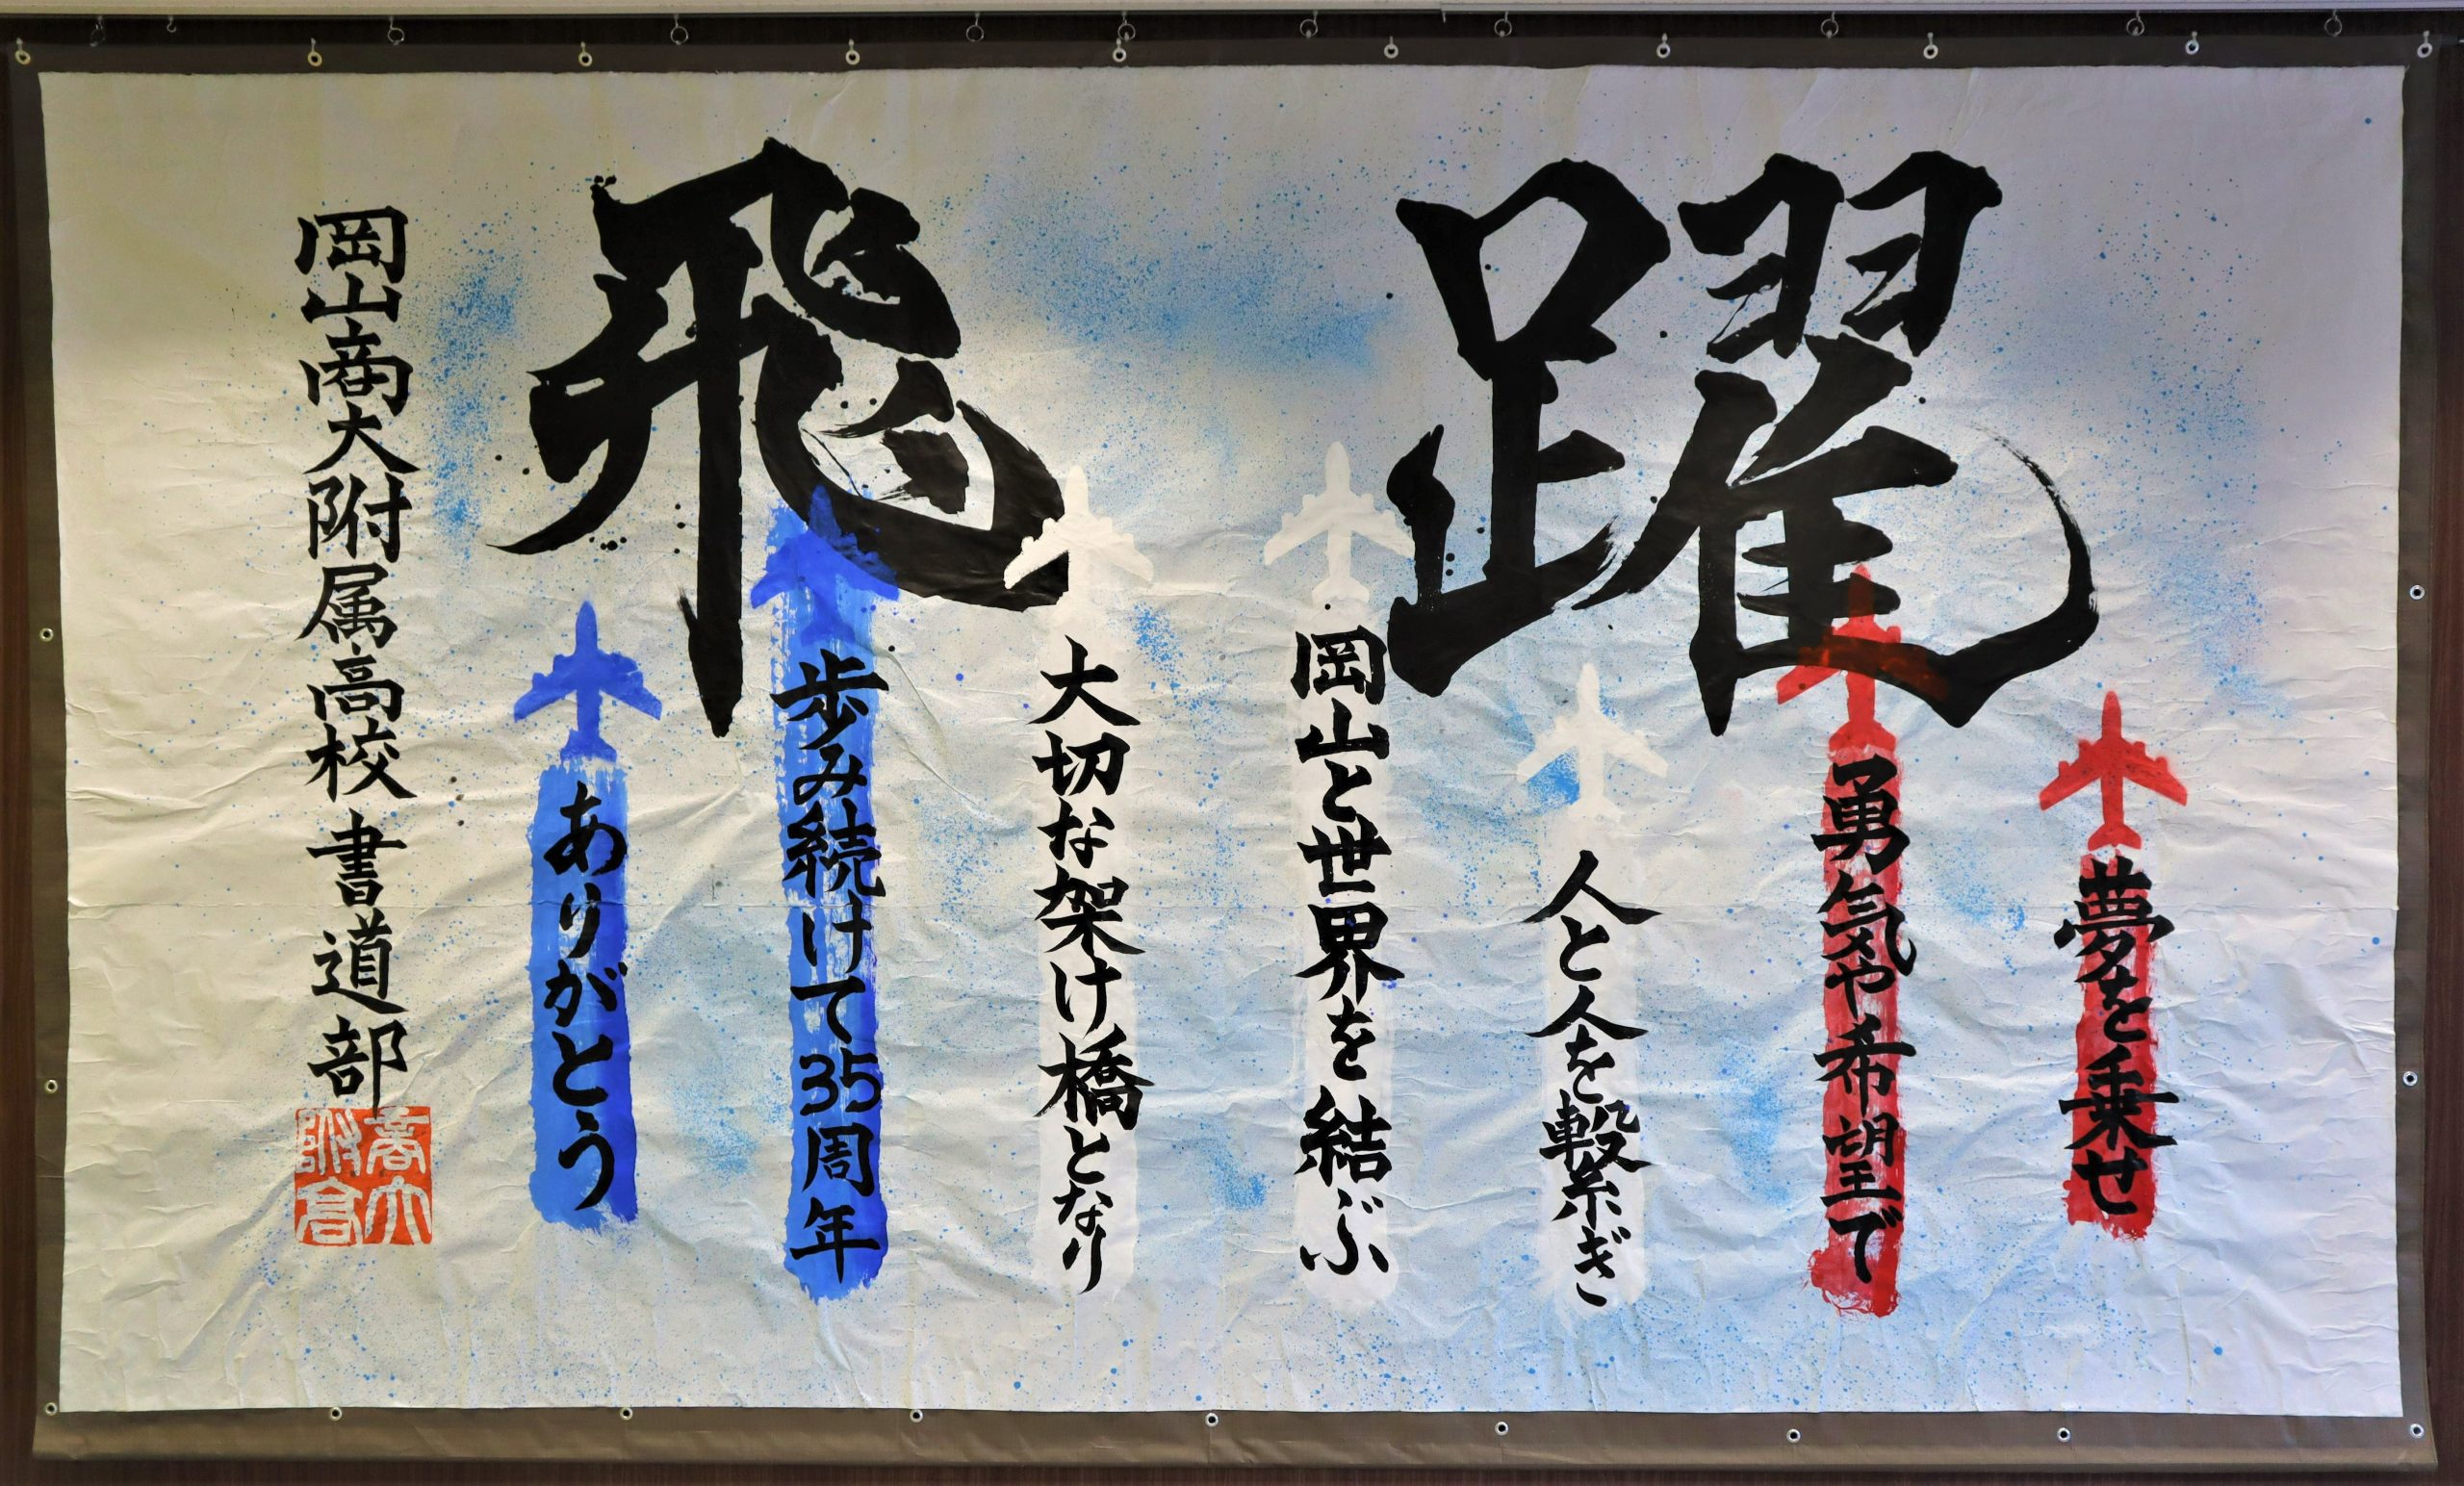 飛躍
夢を乗せ
勇気や希望で
人と人を繋ぎ
岡山と世界を結ぶ
大切な架け橋となり
歩み続けて35周年
ありがとう
岡山商大附属高校 書道部
商大
附高